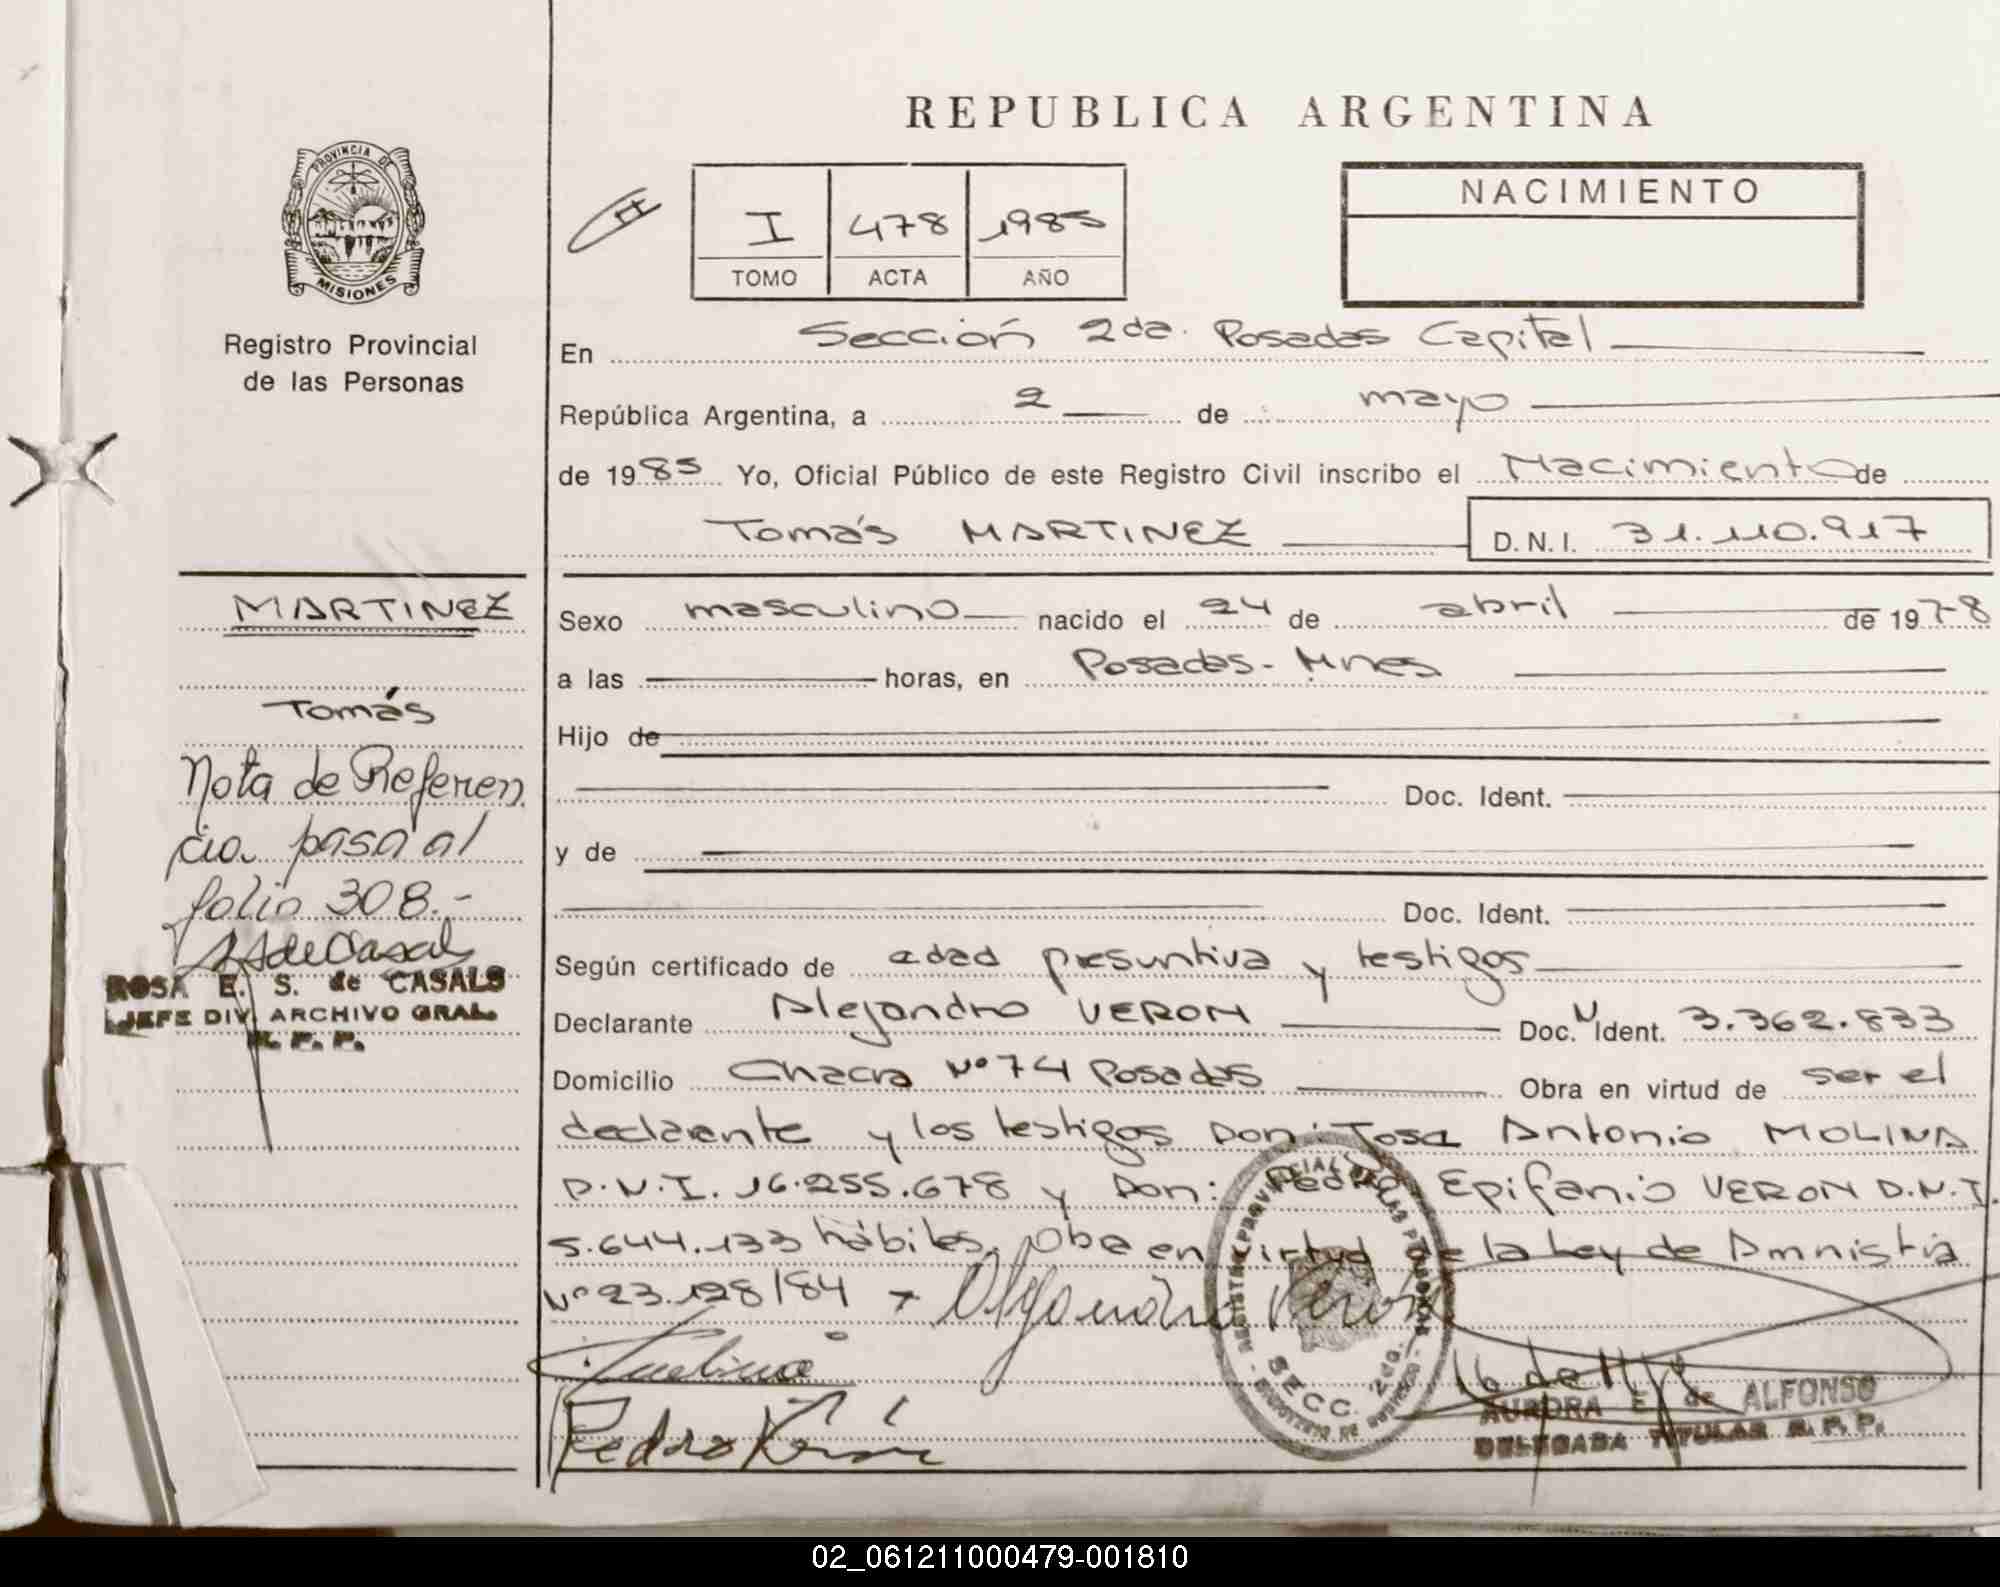 REPUBLICA ARGENTINA
PROVINCIA DE
MISIONES
Registro Provincial
de las Personas
I 478 1985
TOMO ACTA AÑO
NACIMIENTO
En Sección 2da. Posadas Capital
República Argentina, a 2 de mayo
de 1985 Yo, Oficial Público de este Registro Civil inscribo el Nacimiento de
Tomás MARTINEZ D.N.I. 31.110.917
MARTINEZ
Tomás
Nota de Referen
cia pasa al
folio 308.-
ROSA E. S. de CASALS
JEFE DIV. ARCHIVO GRAL.
R. P. P.
Sexo masculino nacido el 24 de abril de 1978
a las horas, en Posadas - Mnes
Hijo de
Doc. Ident.
y de
Doc. Ident.
Según certificado de edad presuntiva y testigos
Declarante Alejandro VERON Doc. Ident. 3.362.833
Domicilio Chacra Nº 74 Posadas Obra en virtud de ser el
declarante y los testigos Don: Jose Antonio MOLINA
D.N.I. 16.255.678 y Don: Pedro Epifanio VERON D.N.I.
5.644.133 hábiles. Obra en virtud de la Ley de Amnistia
Nº 23.128/84 Alejandro Veron
Pedro Verón
SECC. 2da.
AURORA E. de ALFONSO
DELEGADA TITULAR R. P. P.
02_061211000479-001810